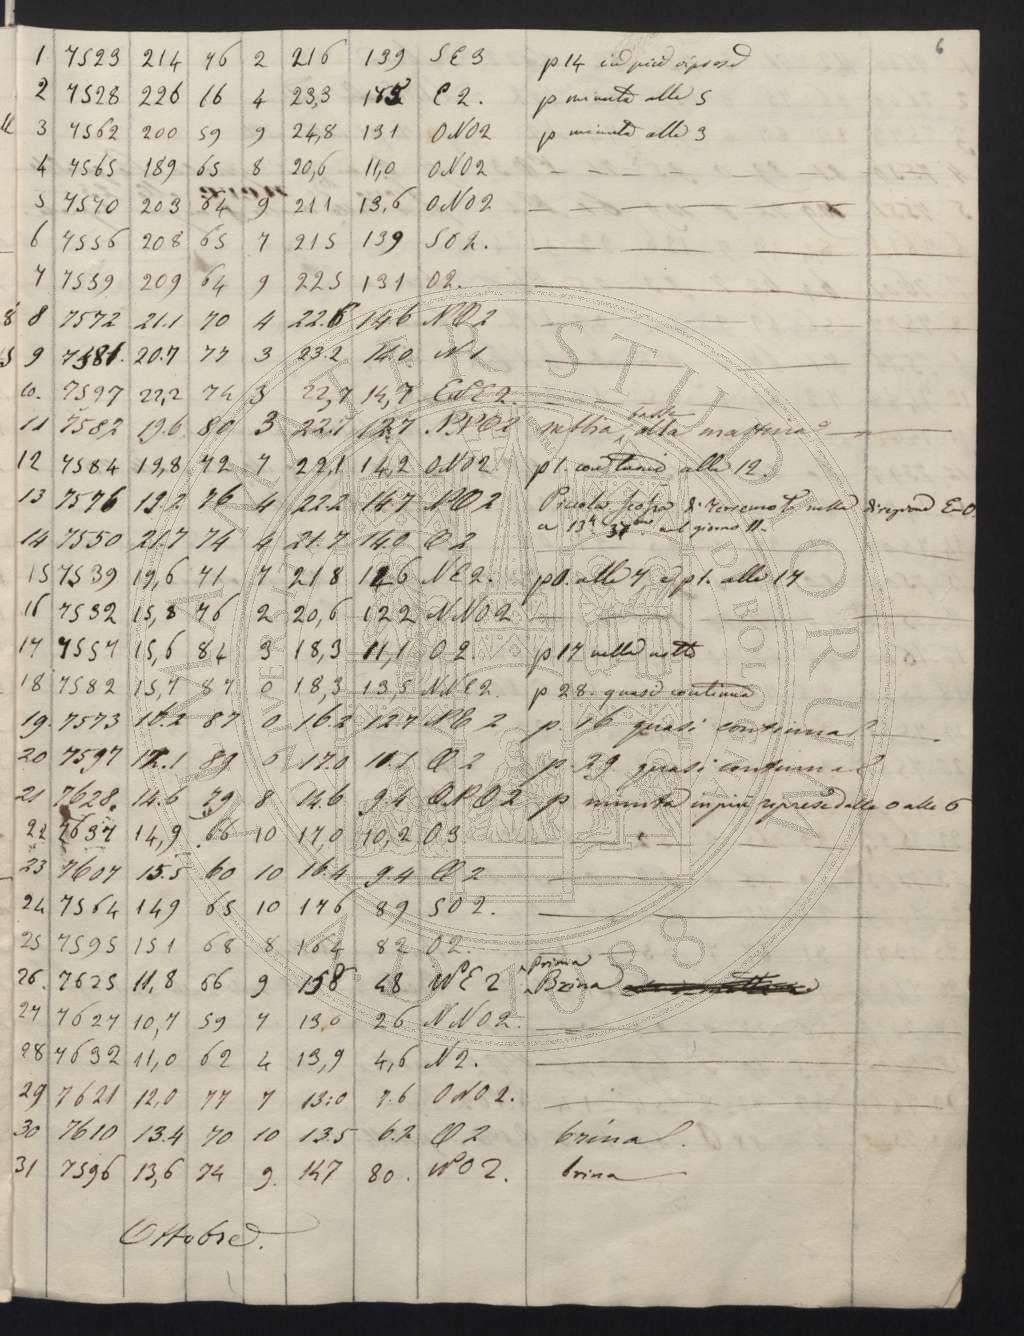 6
1 7523 214 76 2 216 139 SE3 p 14 in più riprese
2 7528 226 76 4 23,3 E2. p minuta alle 5
3 7562 200 59 9 24,8 131 ONO2 p minuta alle 3
4 7565 189 65 8 20,6 11,0 ONO2
5 7570 203 64 9 211 13,6 ONO2
6 7556 208 65 7 215 139 SO2.
7 7539 209 64 9 225 131 O2.
8 7572 21.1 70 4 22.6 146 NO2
9 7581. 20.7 77 3 23.2 14.0 N1
10. 7597 22,2 74 3 22,7 14,7 ENE2.
11 7582 19.6 80 3 22.1 12.7 NNO2 nebbia bassa alla mattina
12 7584 19,8 72 7 22,1 14,2 ONO2. p 1. continuò alle 12.
13 7576 19.2 76 4 22.2 14.7 NO2 Piccola scossa di terremoto nella direzione E-O
a 13h 37m nel giorno 11.
14 7550 21.7 74 4 21.7 14.0 O2
15 7539 19,6 71 7 218 126 NE2. p0. alle 7, e p1. alle 17
16 7532 15,8 76 2 20,6 122 NNO2
17 7557 15,6 84 3 18,3 11,1 O2. p 17 nella notte
18 7582 15,7 87 0 18,3 13,5 NNE2 p 28. quasi continua
19. 7573 16.2 87 0 16.2 12.7 NE2 p. 16 quasi continua
20 7597 12.1 89 0 17.0 11.1 O2 p. 29 quasi continua
21 7628. 14.6 79 8 14.6 9.4 ONO2 p minuta in più riprese dalle 0 alle 6
22 7637 14,9 66 10 17,0 10,2 O3
23 7607 15.5 60 10 16.4 9.4 O2
24 7564 149 65 10 176 89 SO2.
25 7595 151 68 8 164 82 O2.
26. 7625 11,8 66 9 158 48 NE2 Prima
Brina
27 7627 10,7 59 7 13,0 26 NNO2.
28 7632 11,0 62 4 13,9 4,6 N2.
29 7621 12,0 77 7 13:0 7.6 ONO2.
30 7610 13.4 70 10 13.5 6.2 O2 brina.
31 7596 13,6 74 9. 147 80. NO2. brina
Ottobre.
ALMA MATER STUDIORUM
A.D. 1088